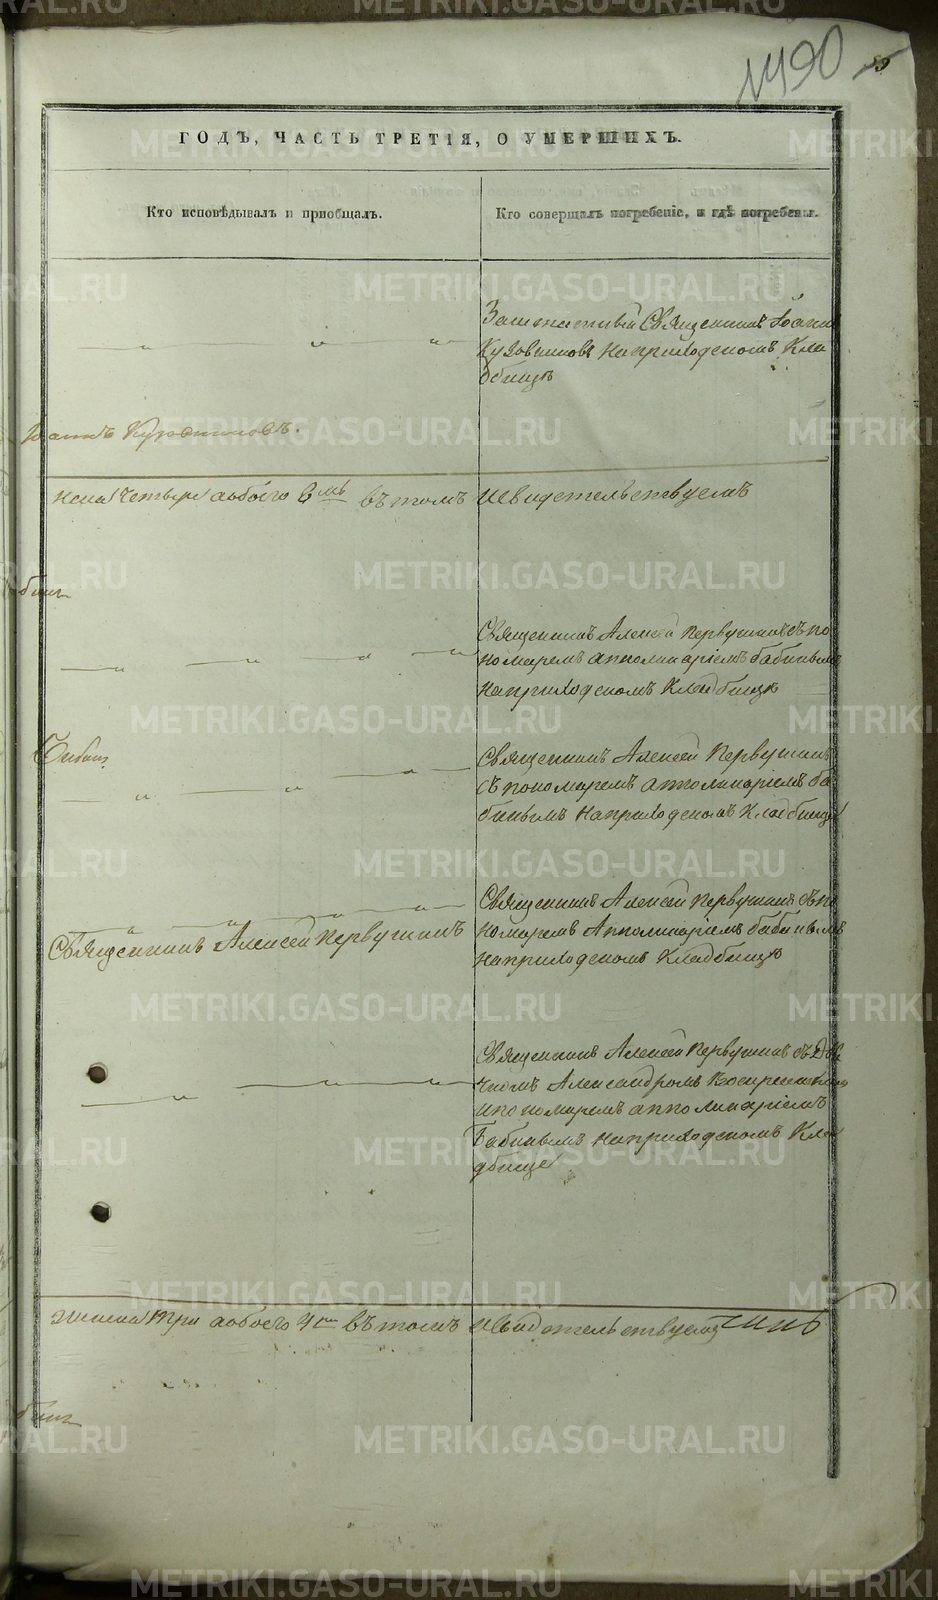 1490
ГОДЪ, ЧАСТЬ ТРЕТІЯ, О УМЕРШИХЪ.
Кто исповѣдывалъ и пріобщалъ.
Кто совершалъ погребеніе, и гдѣ погребены.
Заштатный Священникъ Іоаннъ
Кузовниковъ на приходскомъ Кла
дбищѣ
Іоаннъ
пола четыре а обоего 6 въ томъ и свидетельствуемъ
Священникъ Алексей Первушинъ съ по
номаремъ Апполинаріемъ Бабинымъ
на приходскомъ Кладбищѣ
Священникъ Алексей Первушинъ
съ пономаремъ Апполинаріемъ Ба
бинымъ на приходскомъ Кладбище
Священникъ Алексей Первушинъ съ по
номаремъ Апполинаріемъ Бабинымъ
на приходскомъ Кладбищѣ
Священникъ Алексей Первушинъ
Священникъ Алексей Первушинъ съ Дья
чкомъ Александромъ
и пономаремъ Апполинаріемъ
Бабинымъ на приходскомъ Кла
дбище
три а обоего въ томъ и свидетельствуемъ
METRIKI.GASO-URAL.RU